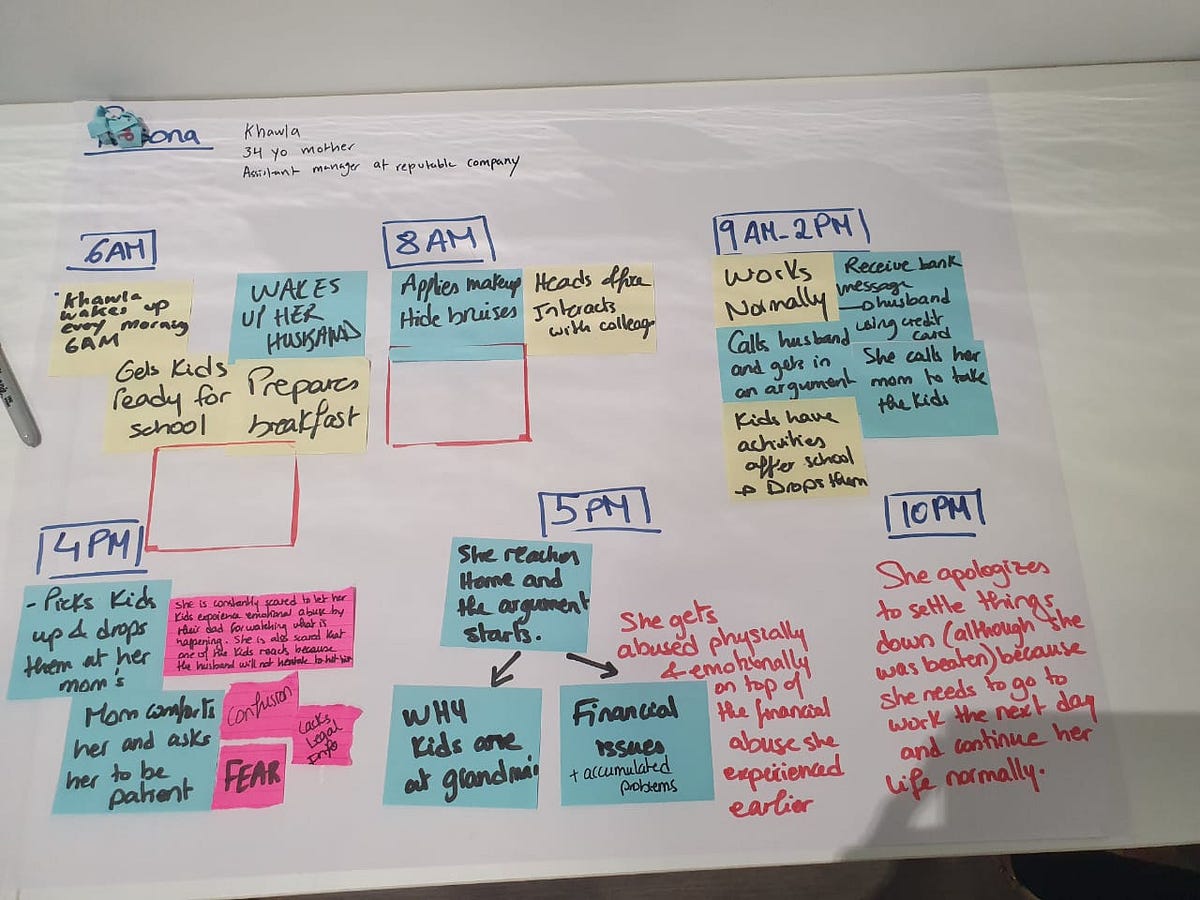 Khawla
34 yo mother
Assistant manager at reputable company
6AM
Khawla
wakes up
every morning
6AM
WAKES
UP HER
HUSBAND
Gets Kids
ready for
school
Prepares
breakfast
8 AM
Applies makeup
Hide bruises
Heads office
Interacts
with colleag
9 AM-2PM
Works
Normally
Receive bank
message
→ husband
using credit
card
Calls husband
and gets in
an argument
She calls her
mom to take
the Kids
Kids have
activities
after school
→ Drops them
4 PM
- Picks Kids
up & drops
them at her
mom's
She is constantly scared to let her
Kids experience emotional abuse by
their dad for watching what is
happening. She is also scared that
one of the Kids reacts because
the husband will not hesitate to hit
Mom comforts
her and asks
her to be
patient
Confusion
Lacks
Legal
Info
FEAR
5 PM
She reaches
Home and
the argument
starts.
WHY
Kids are
at grandma
Financial
issues
+ accumulated
problems
She gets
abused physically
& emotionally
on top of
the financial
abuse she
experienced
earlier
10PM
She apologizes
to settle things
down (although she
was beaten) because
she needs to go to
work the next day
and continue her
life normally.